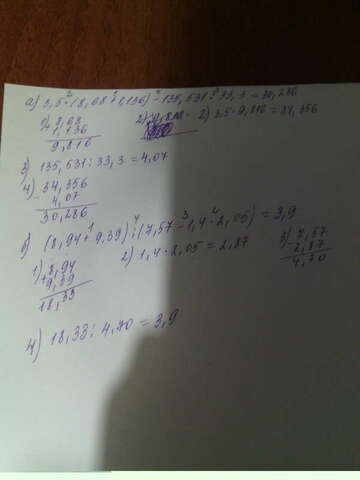 а) 3,5·(8,68+1,136)-135,531:33,3=30,286
1) 8,68
+ 1,136
9,816
2) 3,5·9,816=34,356
3) 135,531:33,3=4,07
4) 34,356
- 4,07
30,286
б) (8,94+9,39):(7,57-1,4·2,05)=3,9
1) 8,94
+ 9,39
18,33
2) 1,4·2,05=2,87
3) 7,57
- 2,87
4,70
4) 18,33:4,70=3,9